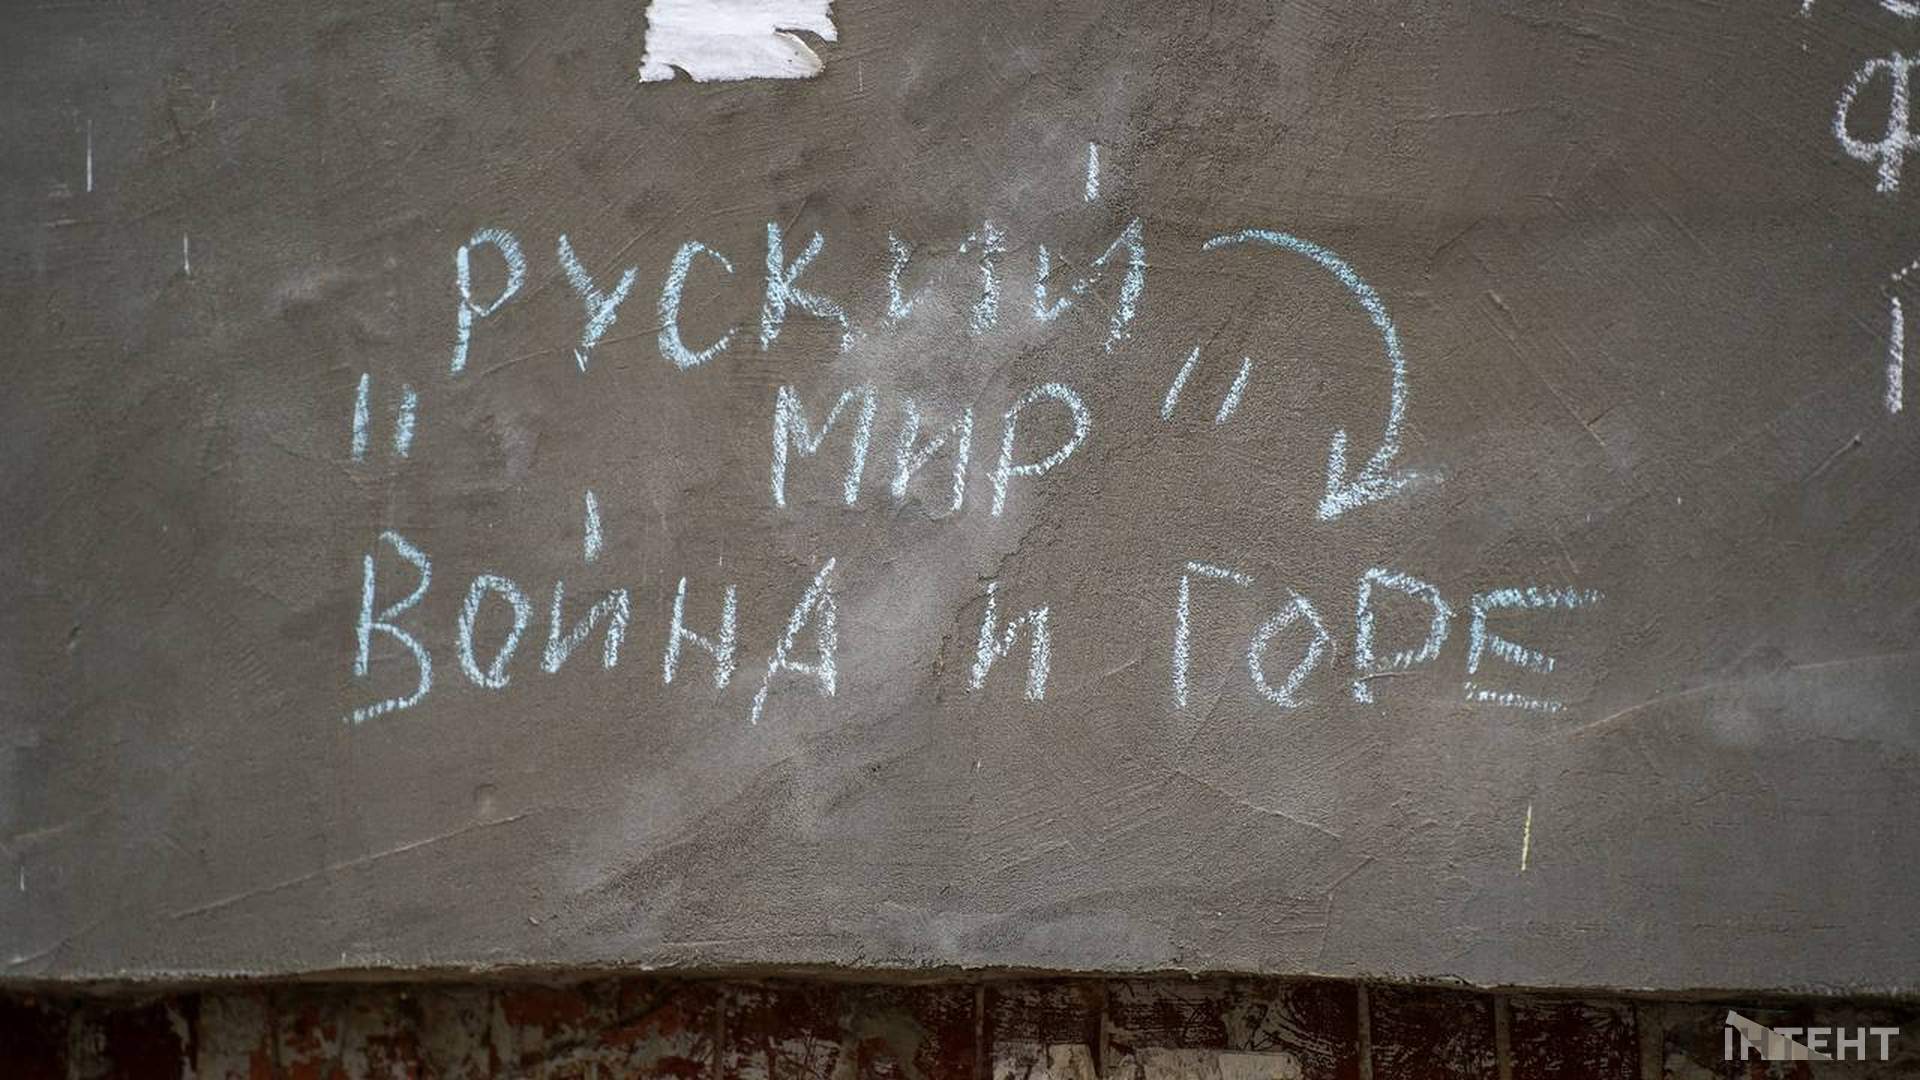 РУСКИЙ
" МИР "
ВОЙНА И ГОРЕ
ф
ІНТЕНТ